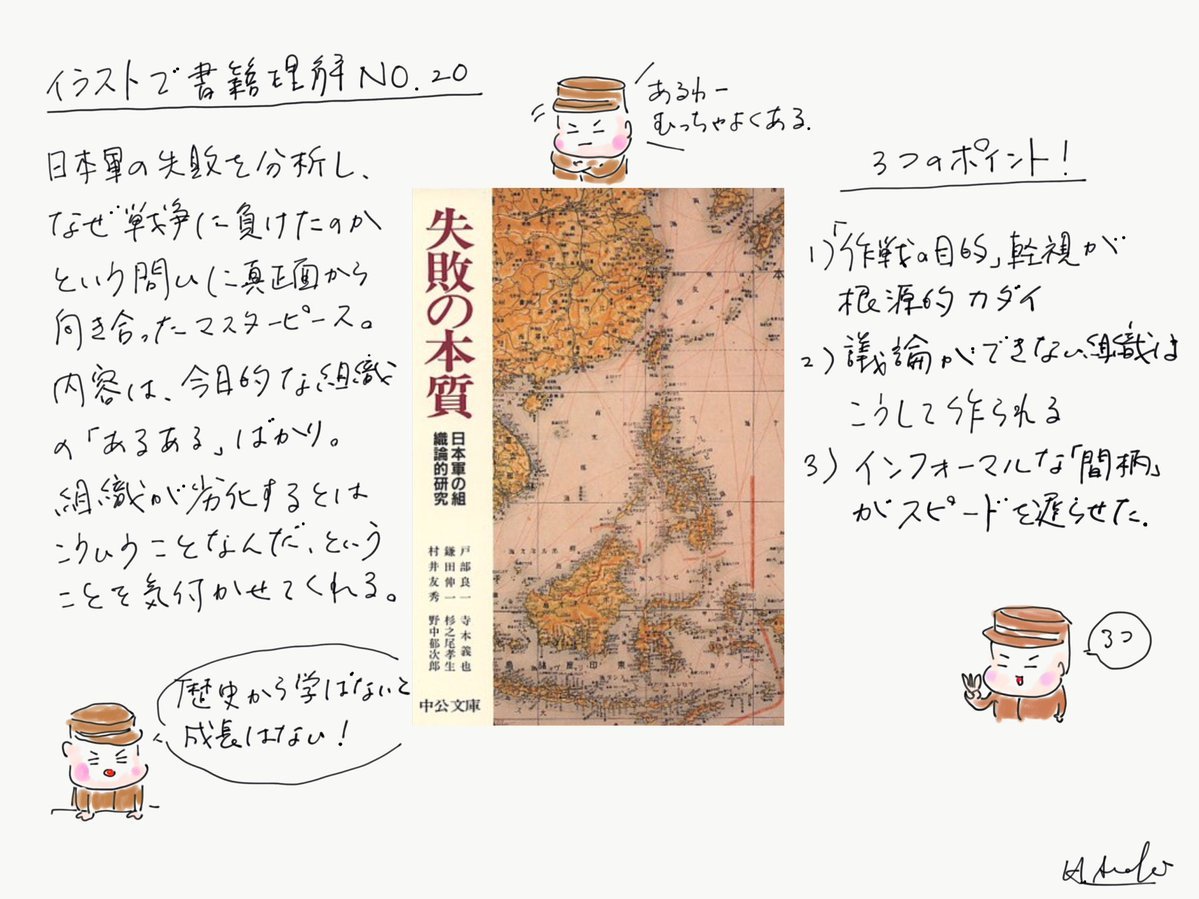 イラストで書籍理解NO.20
日本軍の失敗を分析し、
なぜ戦争に負けたのか
という問いに真正面から
向き合ったマスターピース。
内容は、今日的な組織
の「あるある」ばかり。
組織が劣化するとは
こういうことなんだ、という
ことを気付かせてくれる。
歴史から学ばないと
成長はない!
あるわー
むっちゃよくある.
失敗の本質
日本軍の組
織論的研究
戸部良一 寺本義也
鎌田伸一 杉之尾孝生
村井友秀 野中郁次郎
中公文庫
3つのポイント!
1)「作戦の目的」軽視が
根源的カダイ
2)議論ができない組織は
こうして作られる
3)インフォーマルな「間柄」
がスピードを遅らせた.
3つ